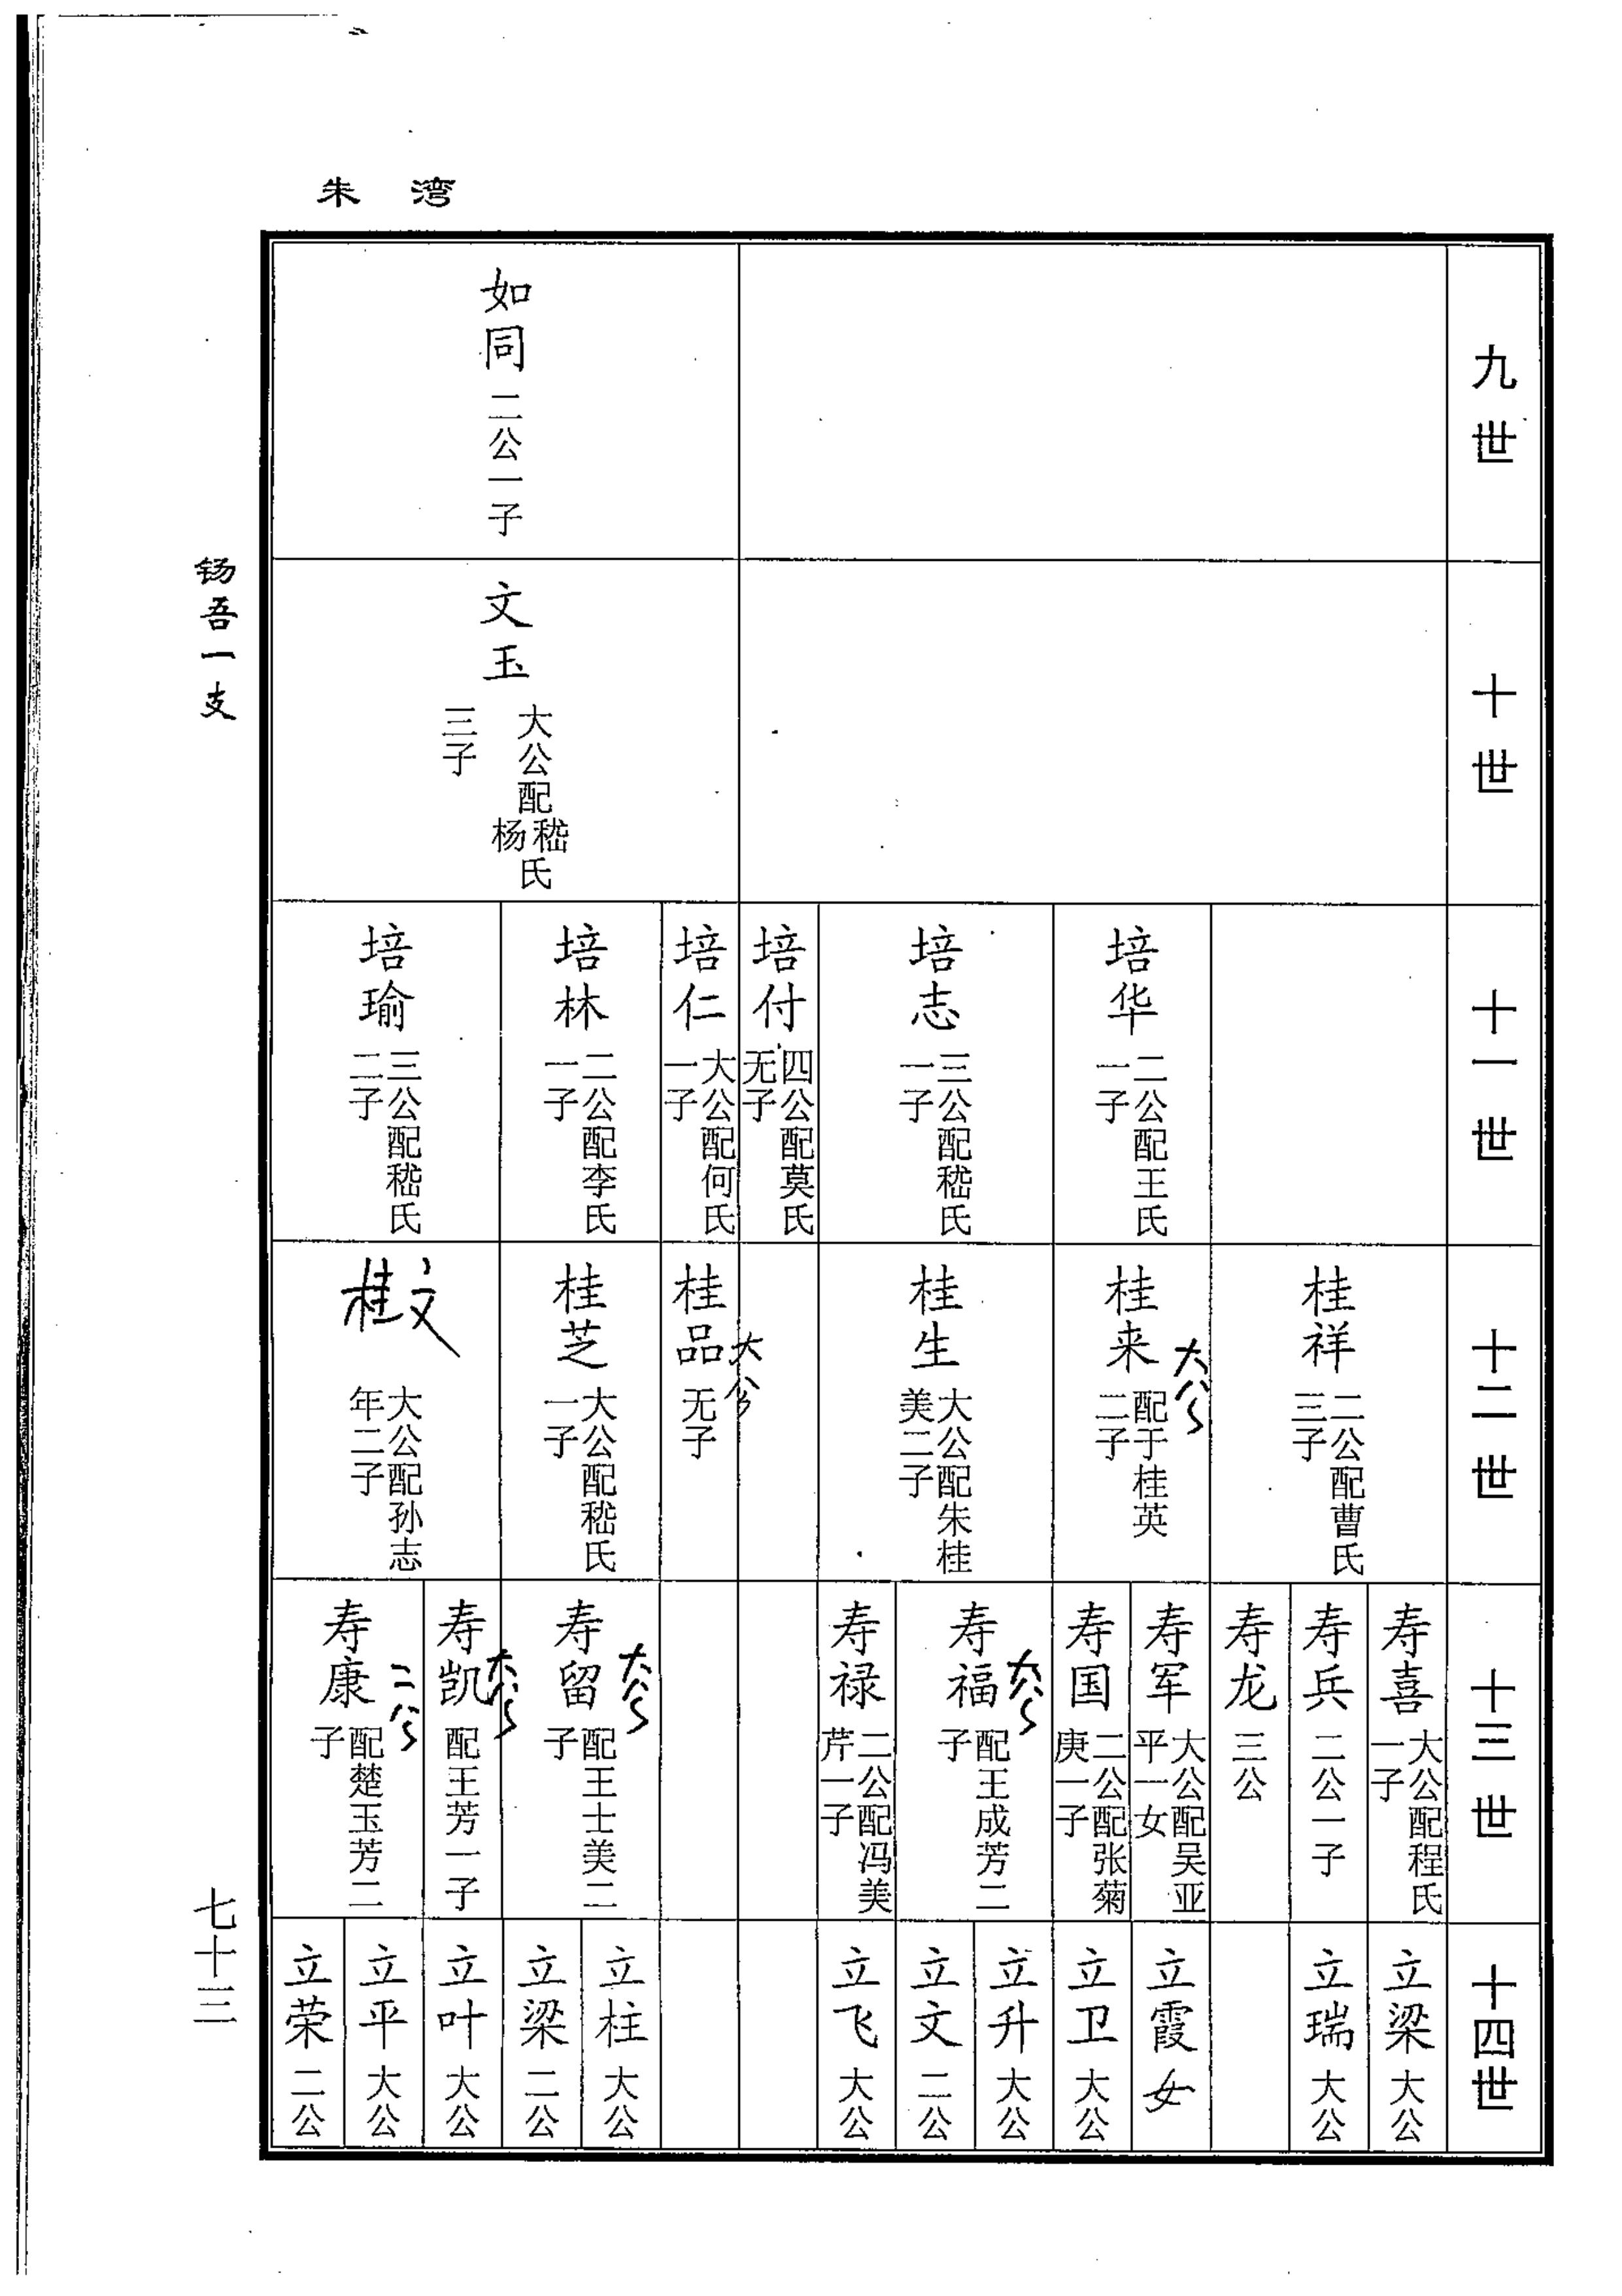 朱湾
九世
如同
二公一子
十世
文玉
大公配嵇杨氏
三子
十一世
培华
二公配王氏
一子
培志
三公配嵇氏
一子
培付
四公配莫氏
无子
培仁
大公配何氏
一子
培林
二公配李氏
一子
培瑜
三公配嵇氏
二子
十二世
桂祥
二公配曹氏
三子
桂来
大公
配于桂英
二子
桂生
大公配朱桂
美二子
桂品
大公
无子
桂芝
大公配嵇氏
一子
桂文
大公配孙志
年二子
十三世
寿喜
大公配程氏
一子
寿兵
二公一子
寿龙
三公
寿军
大公配吴亚
平一女
寿国
二公配张菊
庚一子
寿福
大公
配王成芳二
子
寿禄
二公配冯美
芹一子
寿留
大公
配王士美二
子
寿凯
大公
配王芳一子
寿康
二公
配楚玉芳二
子
十四世
立梁
大公
立瑞
大公
立霞
女
立卫
大公
立升
大公
立文
二公
立飞
大公
立柱
大公
立梁
二公
立叶
大公
立平
大公
立荣
二公
钖吾一支
七十三